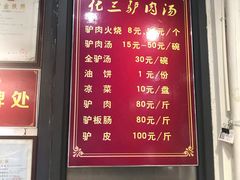 化三驴肉汤
驴肉火烧 8元 元/个
驴肉汤 15元-50元/碗
全驴汤 30元/碗
油饼 1元/份
凉菜 10元/盘
驴肉 80元/斤
驴板肠 80元/斤
驴皮 100元/斤
牌处